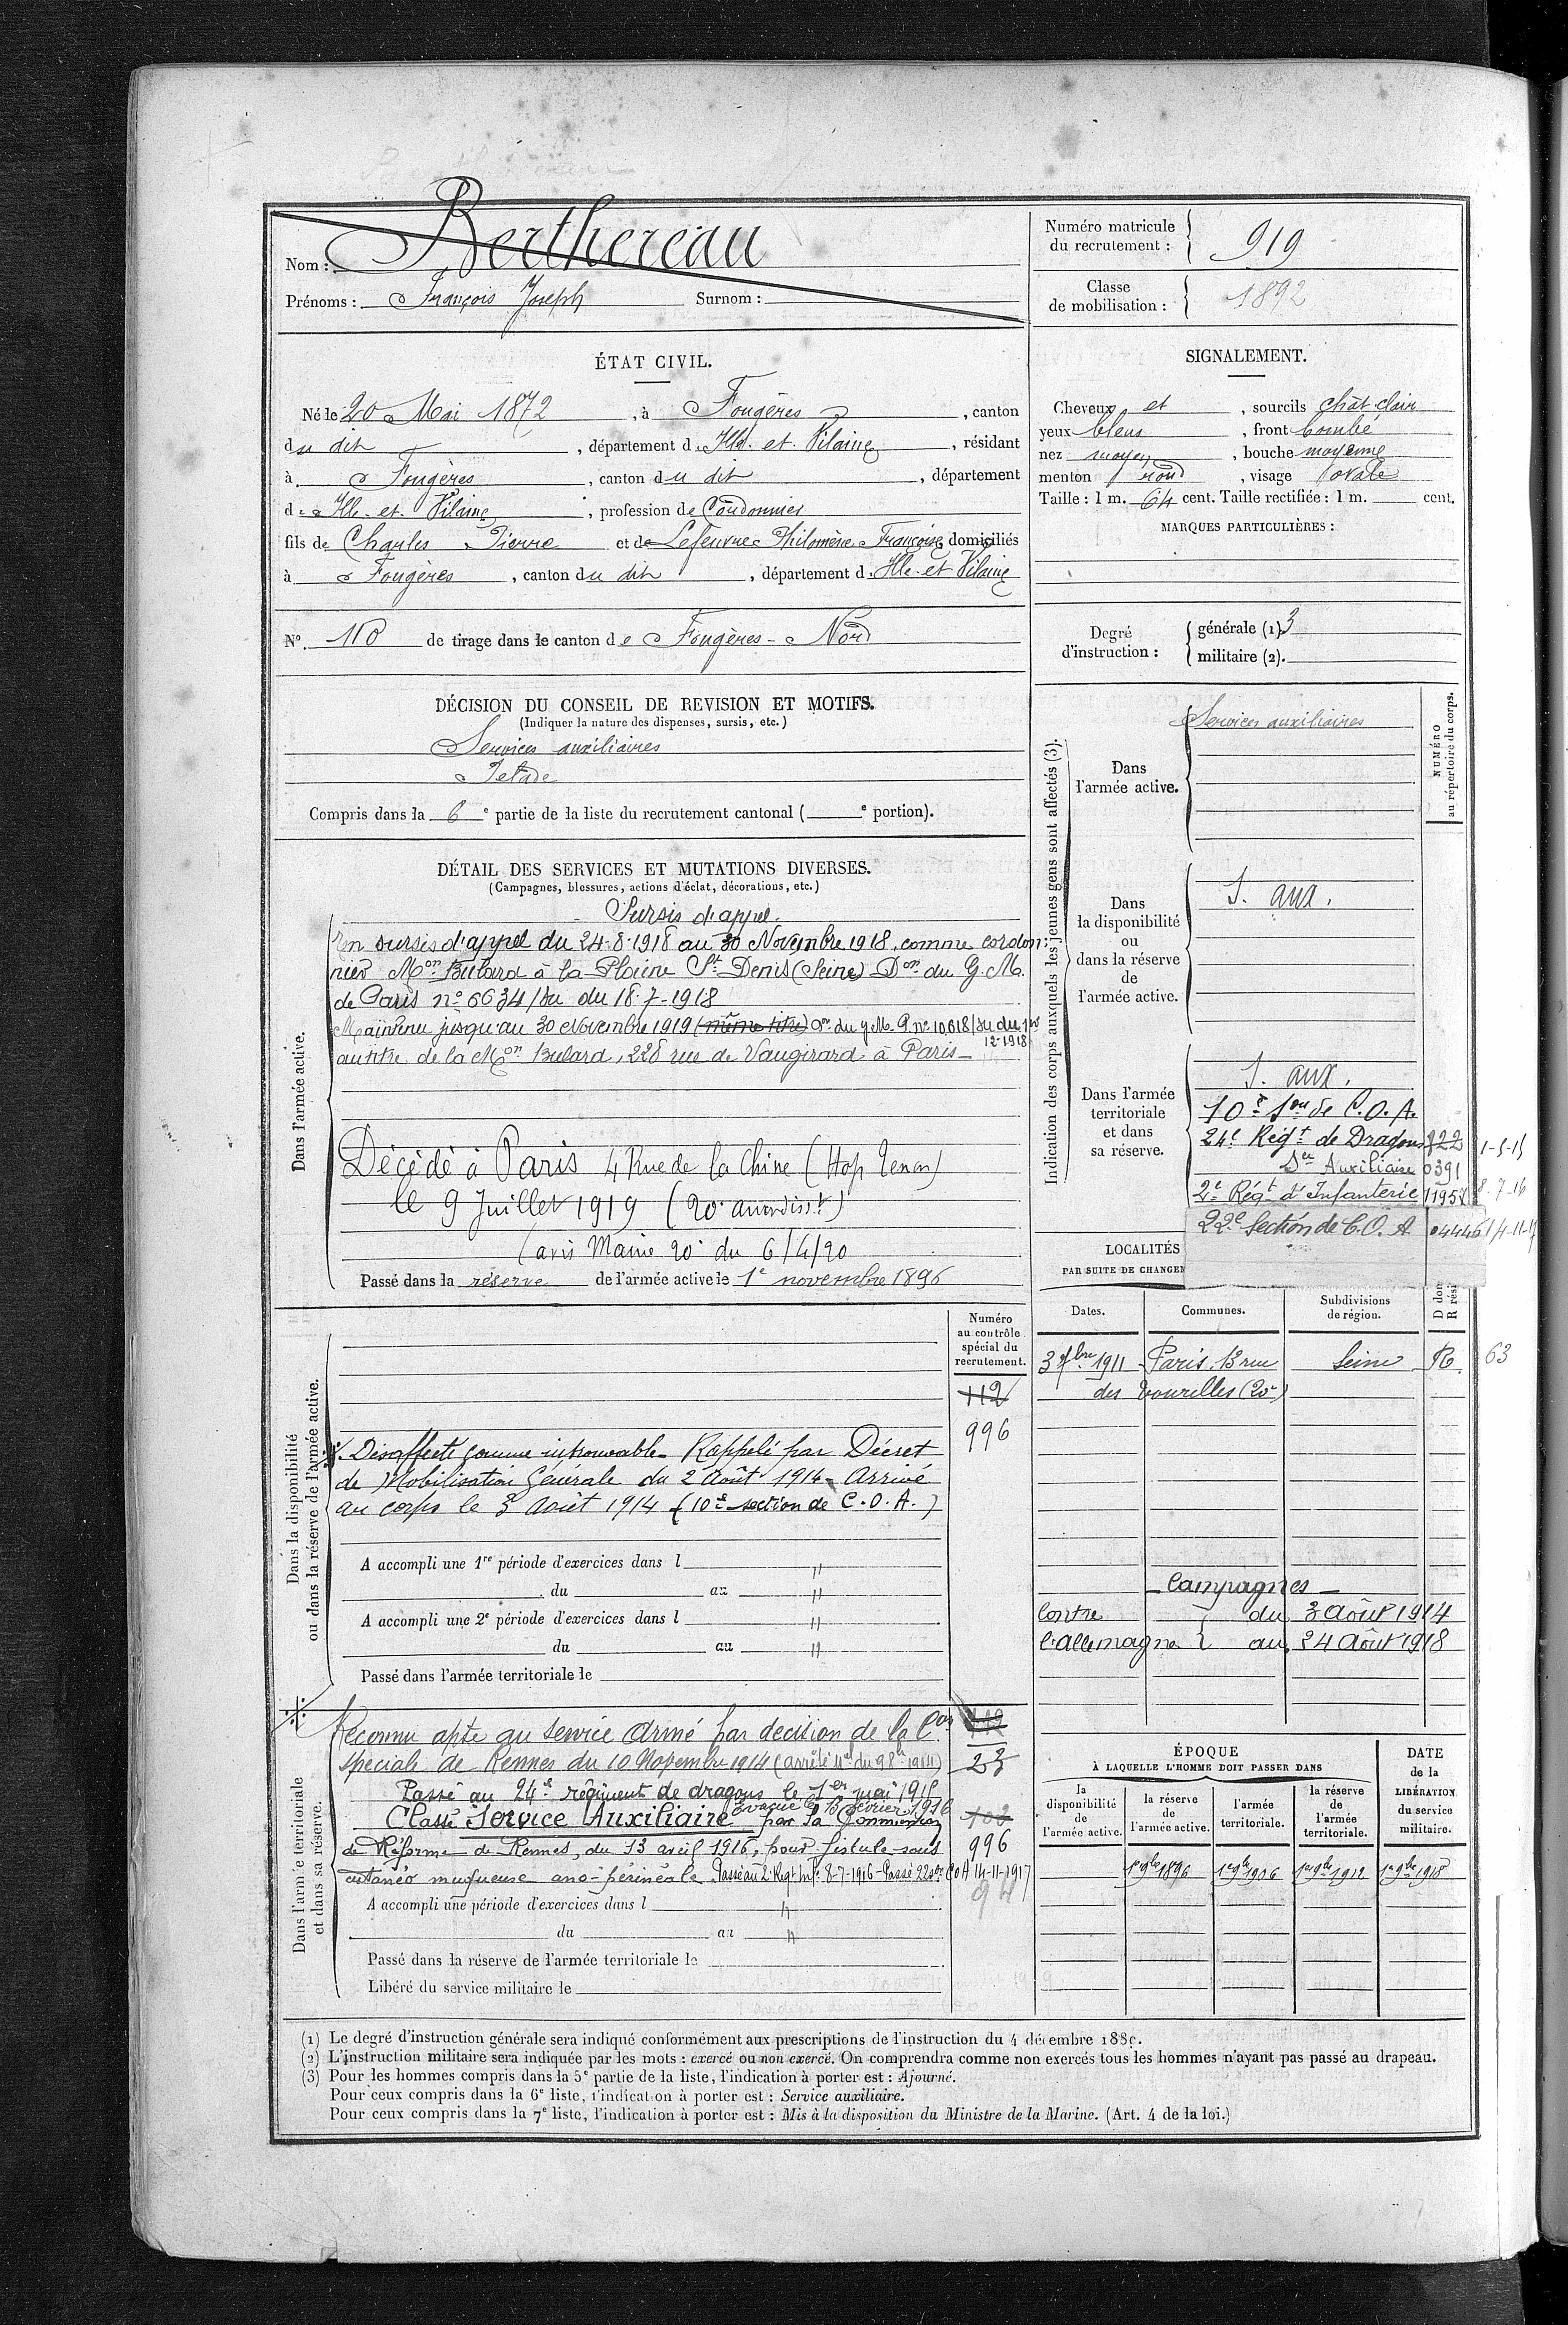 Nom : Berthereau
Prénoms : François Joseph Surnom :
Numéro matricule du recrutement : 919
Classe de mobilisation : 1892
ÉTAT CIVIL.
Né le 20 Mai 1872, à Fougères, canton
du dit, département d. Ille. et. Vilaine, résidant
à Fougères, canton du dit, département
d. Ille. et. Vilaine, profession de Cordonnier
fils de Charles Pierre et de Lefeuvre Philomène Françoise domiciliés
à Fougères, canton du dit, département d. Ille. et Vilaine
N° 110 de tirage dans le canton de Fougères-Nord
SIGNALEMENT.
Cheveux et, sourcils chat clair
yeux bleus, front bombé
nez moyen, bouche moyenne
menton rond, visage ovale
Taille : 1 m. 64 cent. Taille rectifiée : 1 m. cent.
MARQUES PARTICULIÈRES :
Degré d'instruction : générale (1) 3
militaire (2).
DÉCISION DU CONSEIL DE REVISION ET MOTIFS.
(Indiquer la nature des dispenses, sursis, etc.)
Services auxiliaires
Compris dans la 6e partie de la liste du recrutement cantonal ( e portion).
DÉTAIL DES SERVICES ET MUTATIONS DIVERSES.
(Campagnes, blessures, actions d'éclat, décorations, etc.)
Dans l'armée active.
Sursis d'appel.
En sursis d'appel du 24-8-1918 au 30 Novembre 1918, comme cordon:
nier Mon Bulard à la Plaine St Denis (Seine) Don du G. M.
de Paris n° 6634/su du 18-7-1918
Maintenu jusqu'au 30 Novembre 1919 (même titre) Don du g. M. P. n° 10,618/su du 1er
12-1918
au titre de la Mon Bulard, 228 rue de Vaugirard à Paris
Décédé à Paris 4 Rue de la Chine (Hop Tenon)
le 9 Juillet 1919 (20e arrondisst)
(avis Mairie 20e du 6/4/20
Passé dans la réserve de l'armée active le 1e novembre 1896
Indication des corps auxquels les jeunes gens sont affectés (3).
NUMÉRO au répertoire du corps.
Dans l'armée active.
Services auxiliaires
Dans la disponibilité ou dans la réserve de l'armée active.
S. aux.
Dans l'armée territoriale et dans sa réserve.
S. aux.
10e Son de C. O. A.
24e Régt de Dragons 822 1-5-15
Sce Auxiliaire 0391
2e Régt d'Infanterie 8-7-16
22e Section de C. O. A 04446 14-11-17
LOCALITÉS
PAR SUITE DE CHANGEM
Dates. Communes. Subdivisions de région.
3 7bre 1911 Paris 13 rue Seine R. 63
des Tourelles (20e)
Campagnes
Contre du 3 Août 1914
l'allemagne au 24 Août 1918
Dans la disponibilité ou dans la réserve de l'armée active.
Numéro au contrôle spécial du recrutement.
112
996
Désaffecté comme introuvable. Rappelé par Décret
de Mobilisation Générale du 2 Août 1914 - Arrivé
au corps le 3 Août 1914 (10e section de C. O. A.)
A accompli une 1re période d'exercices dans l "
du au "
A accompli une 2e période d'exercices dans l "
du au "
Passé dans l'armée territoriale le
Dans l'armée territoriale et dans sa réserve.
Reconnu apte au service armé par décision de la Con
112
spéciale de Rennes du 10 Novembre 1914 (arrêté Mel du 9 8bre 1914)
23
Passé au 24e régiment de dragons le 1er mai 1915
Évacué le 13 février 1916
Classé Service Auxiliaire par la Commission
de Réforme de Rennes, du 13 avril 1916, pour fistule sous
996
cutanéo muqueuse ano-périnéale. Passé au 2e Regt Infie 8-7-1916 - Passé 22e son COA 14-11-1917
A accompli une période d'exercices dans l "
du au "
Passé dans la réserve de l'armée territoriale le
Libéré du service militaire le
ÉPOQUE
À LAQUELLE L'HOMME DOIT PASSER DANS
la disponibilité de l'armée active.
la réserve de l'armée active.
l'armée territoriale.
la réserve de l'armée territoriale.
DATE de la LIBÉRATION du service militaire.
1e 9bre 1896 1e 9bre 1906 1er 9bre 1912 1e 9bre 1918
(1) Le degré d'instruction générale sera indiqué conformément aux prescriptions de l'instruction du 4 décembre 1889.
(2) L'instruction militaire sera indiquée par les mots : exercé ou non exercé. On comprendra comme non exercés tous les hommes n'ayant pas passé au drapeau.
(3) Pour les hommes compris dans la 5e partie de la liste, l'indication à porter est : Ajourné.
Pour ceux compris dans la 6e liste, l'indication à porter est : Service auxiliaire.
Pour ceux compris dans la 7e liste, l'indication à porter est : Mis à la disposition du Ministre de la Marine. (Art. 4 de la loi.)